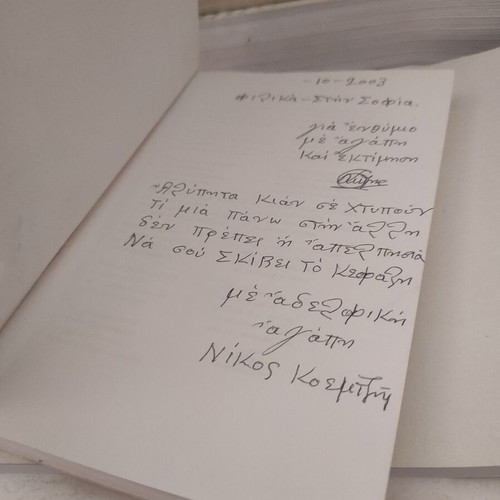 -10-2003
Φιλικά - Στήν Σοφία.
γιά ἐνθύμιο
μέ ἀγάπη
καί ἐκτίμηση
Ἀλύπητα κιάν σέ χτυποῦν
τί μιά πάνω στήν ἄλλη
δέν πρέπει ἡ ἀπελπησιά
Νά σοῦ σκίβει τό κεφάλη
μέ ἀδελφική
ἀγάπη
Νίκος Κοεμτζῆς